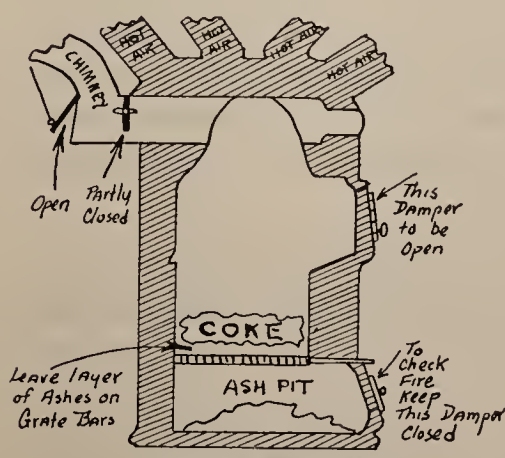 HOT AIR
HOT AIR
HOT AIR
HOT AIR
CHIMNEY
Open
Partly
Closed
This
Damper
to be
Open
COKE
Leave layer
of Ashes on
Grate Bars
ASH PIT
To
Check
Fire
Keep
This Damper
Closed